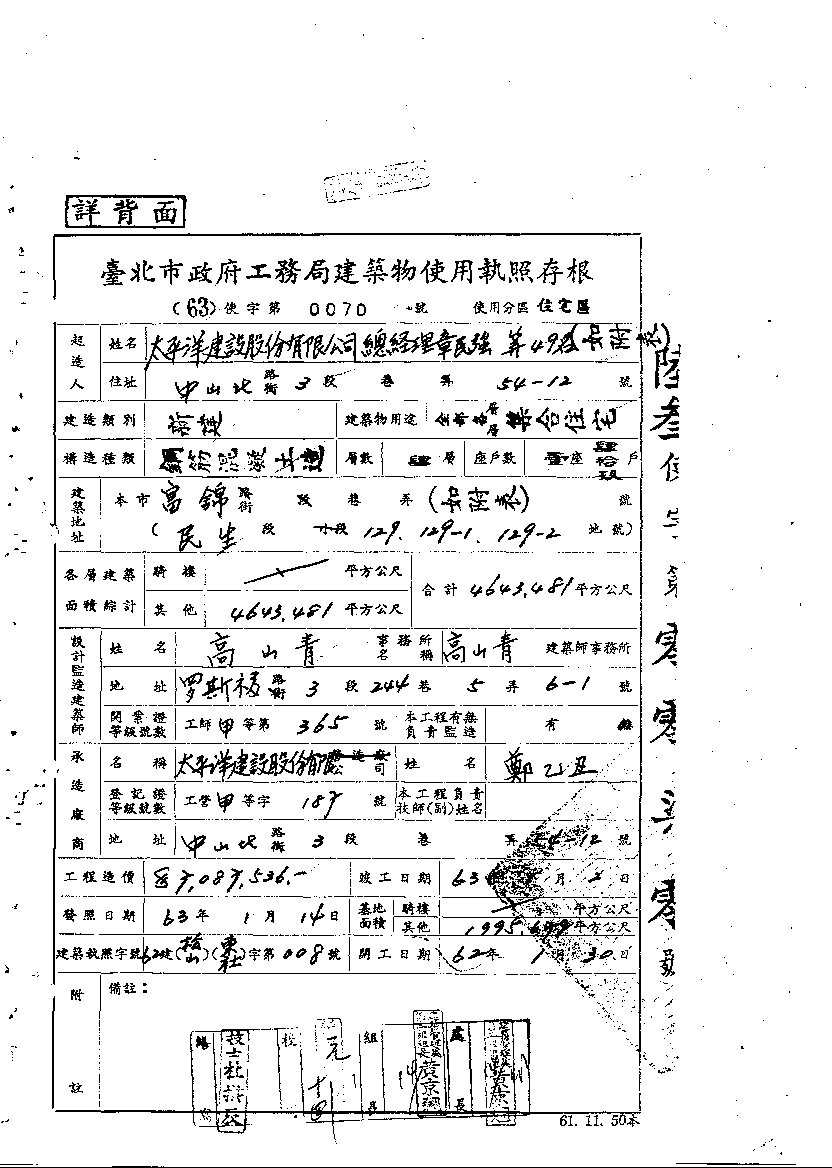 詳背面
臺北市政府工務局建築物使用執照存根
(63)使字第 0070 號 使用分區 住宅區
起造人 姓名 太平洋建設股份有限公司總經理章民強 等49名(如附表)
住址 中山北路街 3 段 巷 弄 54-12 號
建造類別 新建 建築物用途 全部各層 集合住宅
構造種類 鋼筋混凝土造 層數 肆層 座戶數 壹座肆拾玖戶
建築地址 本市 富錦路街 段 巷 弄 (如附表) 號
(民生段 小段 129. 129-1. 129-2 地號)
各層建築面積綜計 騎樓 平方公尺 合計 4643.481平方公尺
其他 4643.481 平方公尺
設計監造建築師 姓名 高山青 事務所名稱 高山青 建築師事務所
地址 罗斯福路街 3 段 244 巷 5 弄 6-1 號
開業證等級號數 工師甲等第 365 號 本工程有無負責監造 有 無
承造廠商 名稱 太平洋建設股份有限公司 姓名 鄭乙丑
登記證等級號數 工營甲等字 187 號 本工程負責技師(副)姓名
地址 中山北路街 3 段 巷 弄 54-12 號
工程造價 7,087,536.- 竣工日期 63年 月 日
發照日期 63年 1月 14日 基地面積 騎樓 平方公尺
其他 平方公尺
建築執照字號 62建(松山)(東社)字第008號 開工日期 62年 1月 30日
附註 備註:
繕寫 技士杜 校 組長 黃京 處長
61. 11. 50本
陸叁使字第零零柒零號